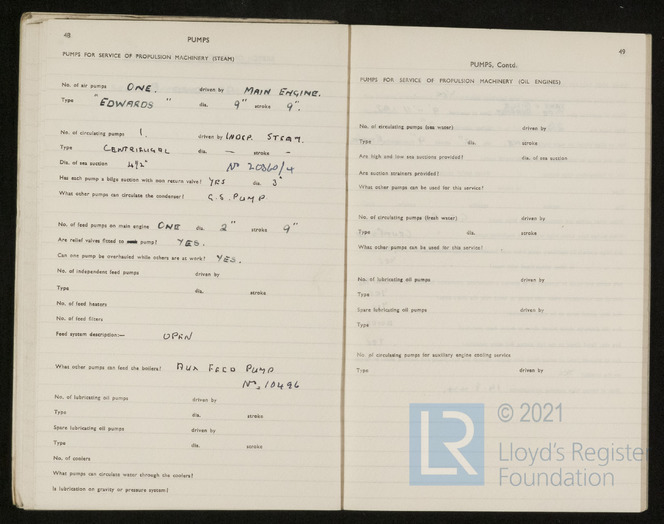 48
PUMPS
PUMPS FOR SERVICE OF PROPULSION MACHINERY (STEAM)
No. of air pumps ONE. driven by MAIN ENGINE.
Type "EDWARDS" dia. 9" stroke 9".
No. of circulating pumps 1. driven by INDEP. STEAM.
Type CENTRIFUGAL dia. — stroke —
Dia. of sea suction 4½" No 20360/4
Has each pump a bilge suction with non return valve? YES dia. 3"
What other pumps can circulate the condenser? G.S. PUMP
No. of feed pumps on main engine ONE dia. 2" stroke 9"
Are relief valves fitted to pump? YES.
Can one pump be overhauled while others are at work? YES.
No. of independent feed pumps driven by
Type dia. stroke
No. of feed heaters
No. of feed filters
Feed system description:— OPEN
What other pumps can feed the boilers? AUX FEED PUMP
No. 10496
No. of lubricating oil pumps driven by
Type dia. stroke
Spare lubricating oil pumps driven by
Type dia. stroke
No. of coolers
What pumps can circulate water through the coolers?
Is lubrication on gravity or pressure system?
49
PUMPS, Contd.
PUMPS FOR SERVICE OF PROPULSION MACHINERY (OIL ENGINES)
No. of circulating pumps (sea water) driven by
Type dia. stroke
Are high and low sea suctions provided? dia. of sea suction
Are suction strainers provided?
What other pumps can be used for this service?
No. of circulating pumps (fresh water) driven by
Type dia. stroke
What other pumps can be used for this service?
No. of lubricating oil pumps driven by
Type
Spare lubricating oil pumps driven by
Type
No. of circulating pumps for auxiliary engine cooling service
Type driven by
LR
© 2021
Lloyd's Register
Foundation